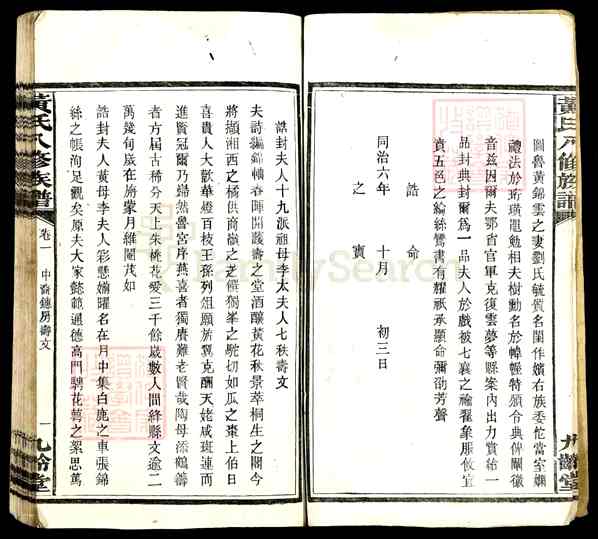 黃氏八修族譜
九齡堂
圖魯黃錦雲之妻劉氏毓質名閨作嬪右族委佗當室嫻
禮法於珩璜黽勉相夫樹勳名於幃幄特頒令典俾闡徽
音茲因爾夫鄂省官軍克復雲夢等縣案內出力賞給一
品封典封爾爲一品夫人於戲被七襄之褕翟象服攸宜
賁五色之綸絲鸞書有耀祇承顯命彌劭芳聲
誥命
同治六年 十月 初三日
之寶
誥封夫人十九派祖母李太夫人七秩壽文
夫詩編錦幛春暉開護壽之堂酒釀黃花秋景萃桐生之閣今
將擷湘西之橘供商嶺之芝餐獨峯之駝切如瓜之棗上伯日
喜貴人大歡華燈百枝王孫列俎願旂冀克酬天姥咸斑連而
進賢冠爾乃歸然魯宮序燕喜者獨賡難老賢哉陶母添鶴籌
者方屆古稀分天上朱桃花愛三千餘歲數人間絳縣文逾二
萬幾旬歲在旃蒙月維閹茂如
誥封夫人黃母李夫人彩懸婺曜名在月中集白鹿之車張錦
絲之帳洵足觀矣原夫大家懿範通德高門騁花萼之絮思萬
黃氏八修族譜
卷一
中齋鏸房壽文
一
九齡堂
FamilySearch